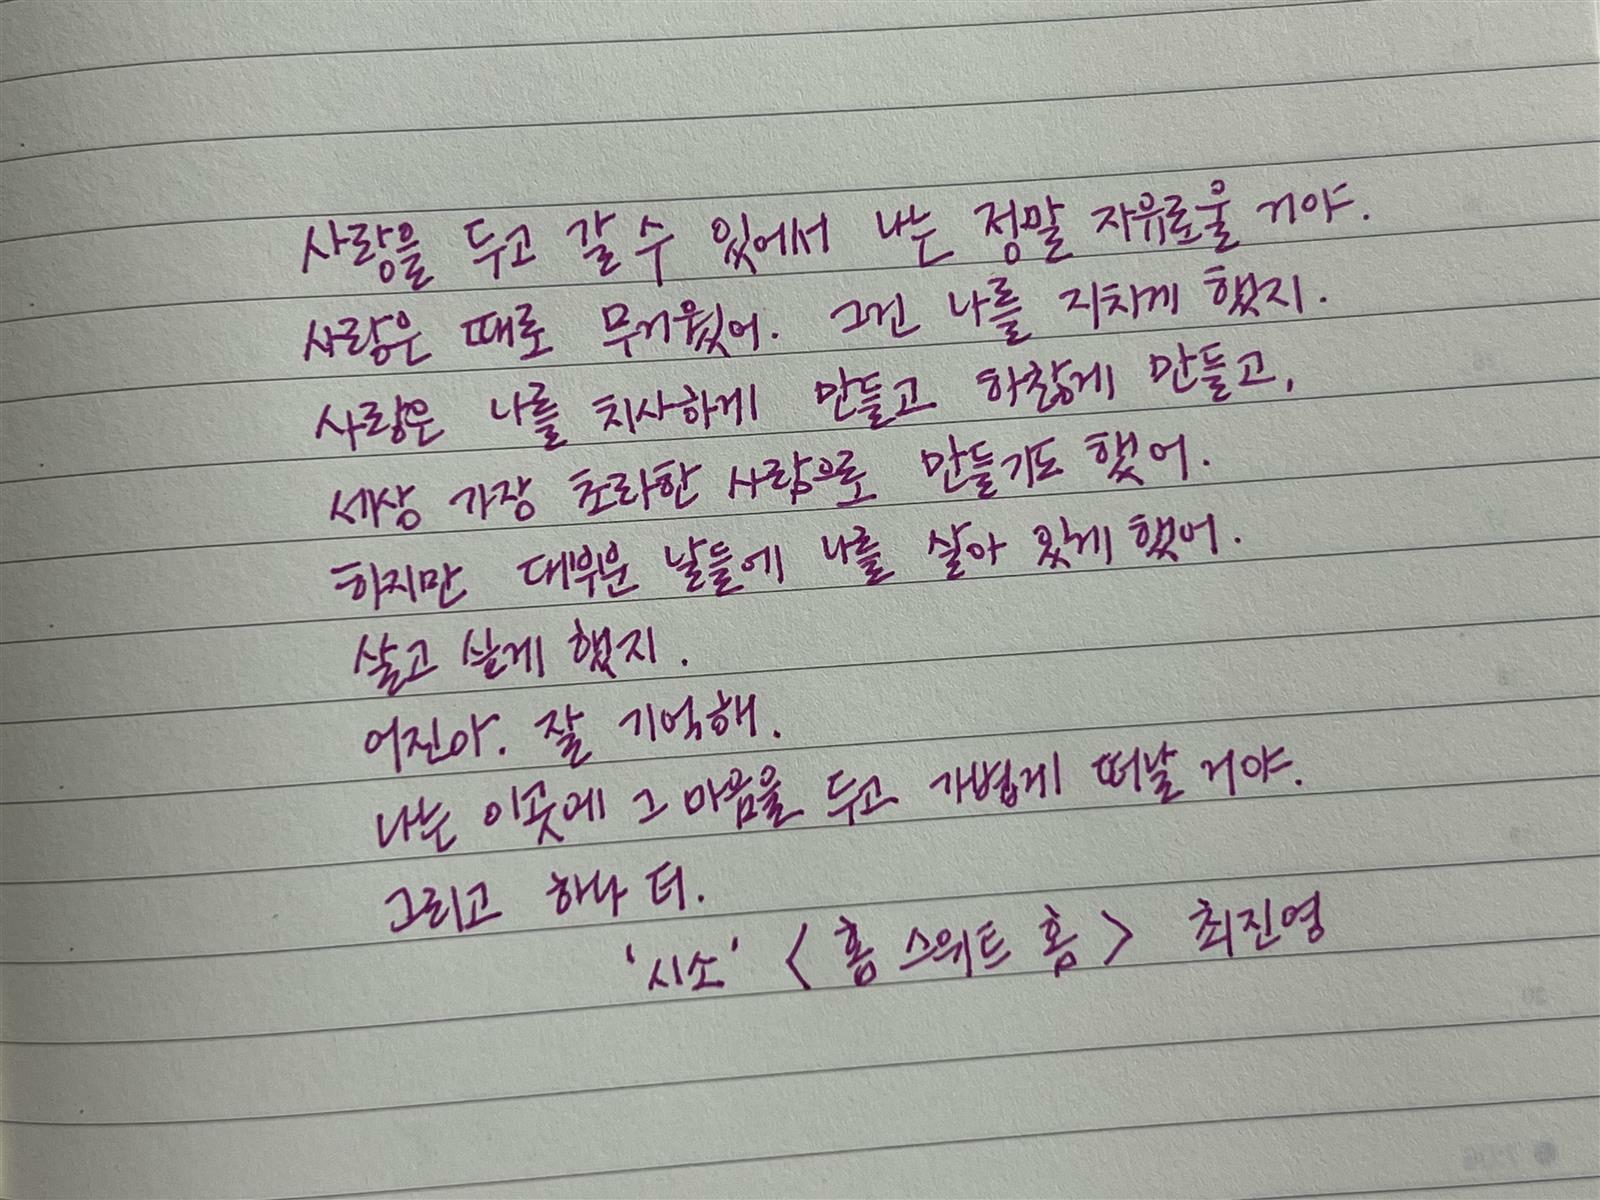 사랑을 두고 갈 수 있어서 나는 정말 자유로울 거야.
사랑은 때로 무거웠어. 그건 나를 지치게 했지.
사랑은 나를 치사하게 만들고 하찮게 만들고,
세상 가장 초라한 사람으로 만들기도 했어.
하지만 대부분 날들에 나를 살아 있게 했어.
살고 싶게 했지.
어진아. 잘 기억해.
나는 이곳에 그 마음을 두고 가볍게 떠날 거야.
그리고 하나 더.
'시소' < 홈 스위트 홈 > 최진영